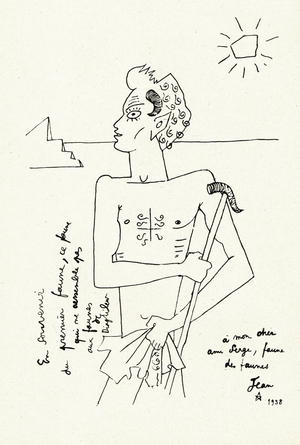 En souvenir
du premier faune, ce faune
qui ne ressemble pas
aux faunes
de
Diaghilev
à mon cher
ami Serge, faune
des faunes
Jean
1938